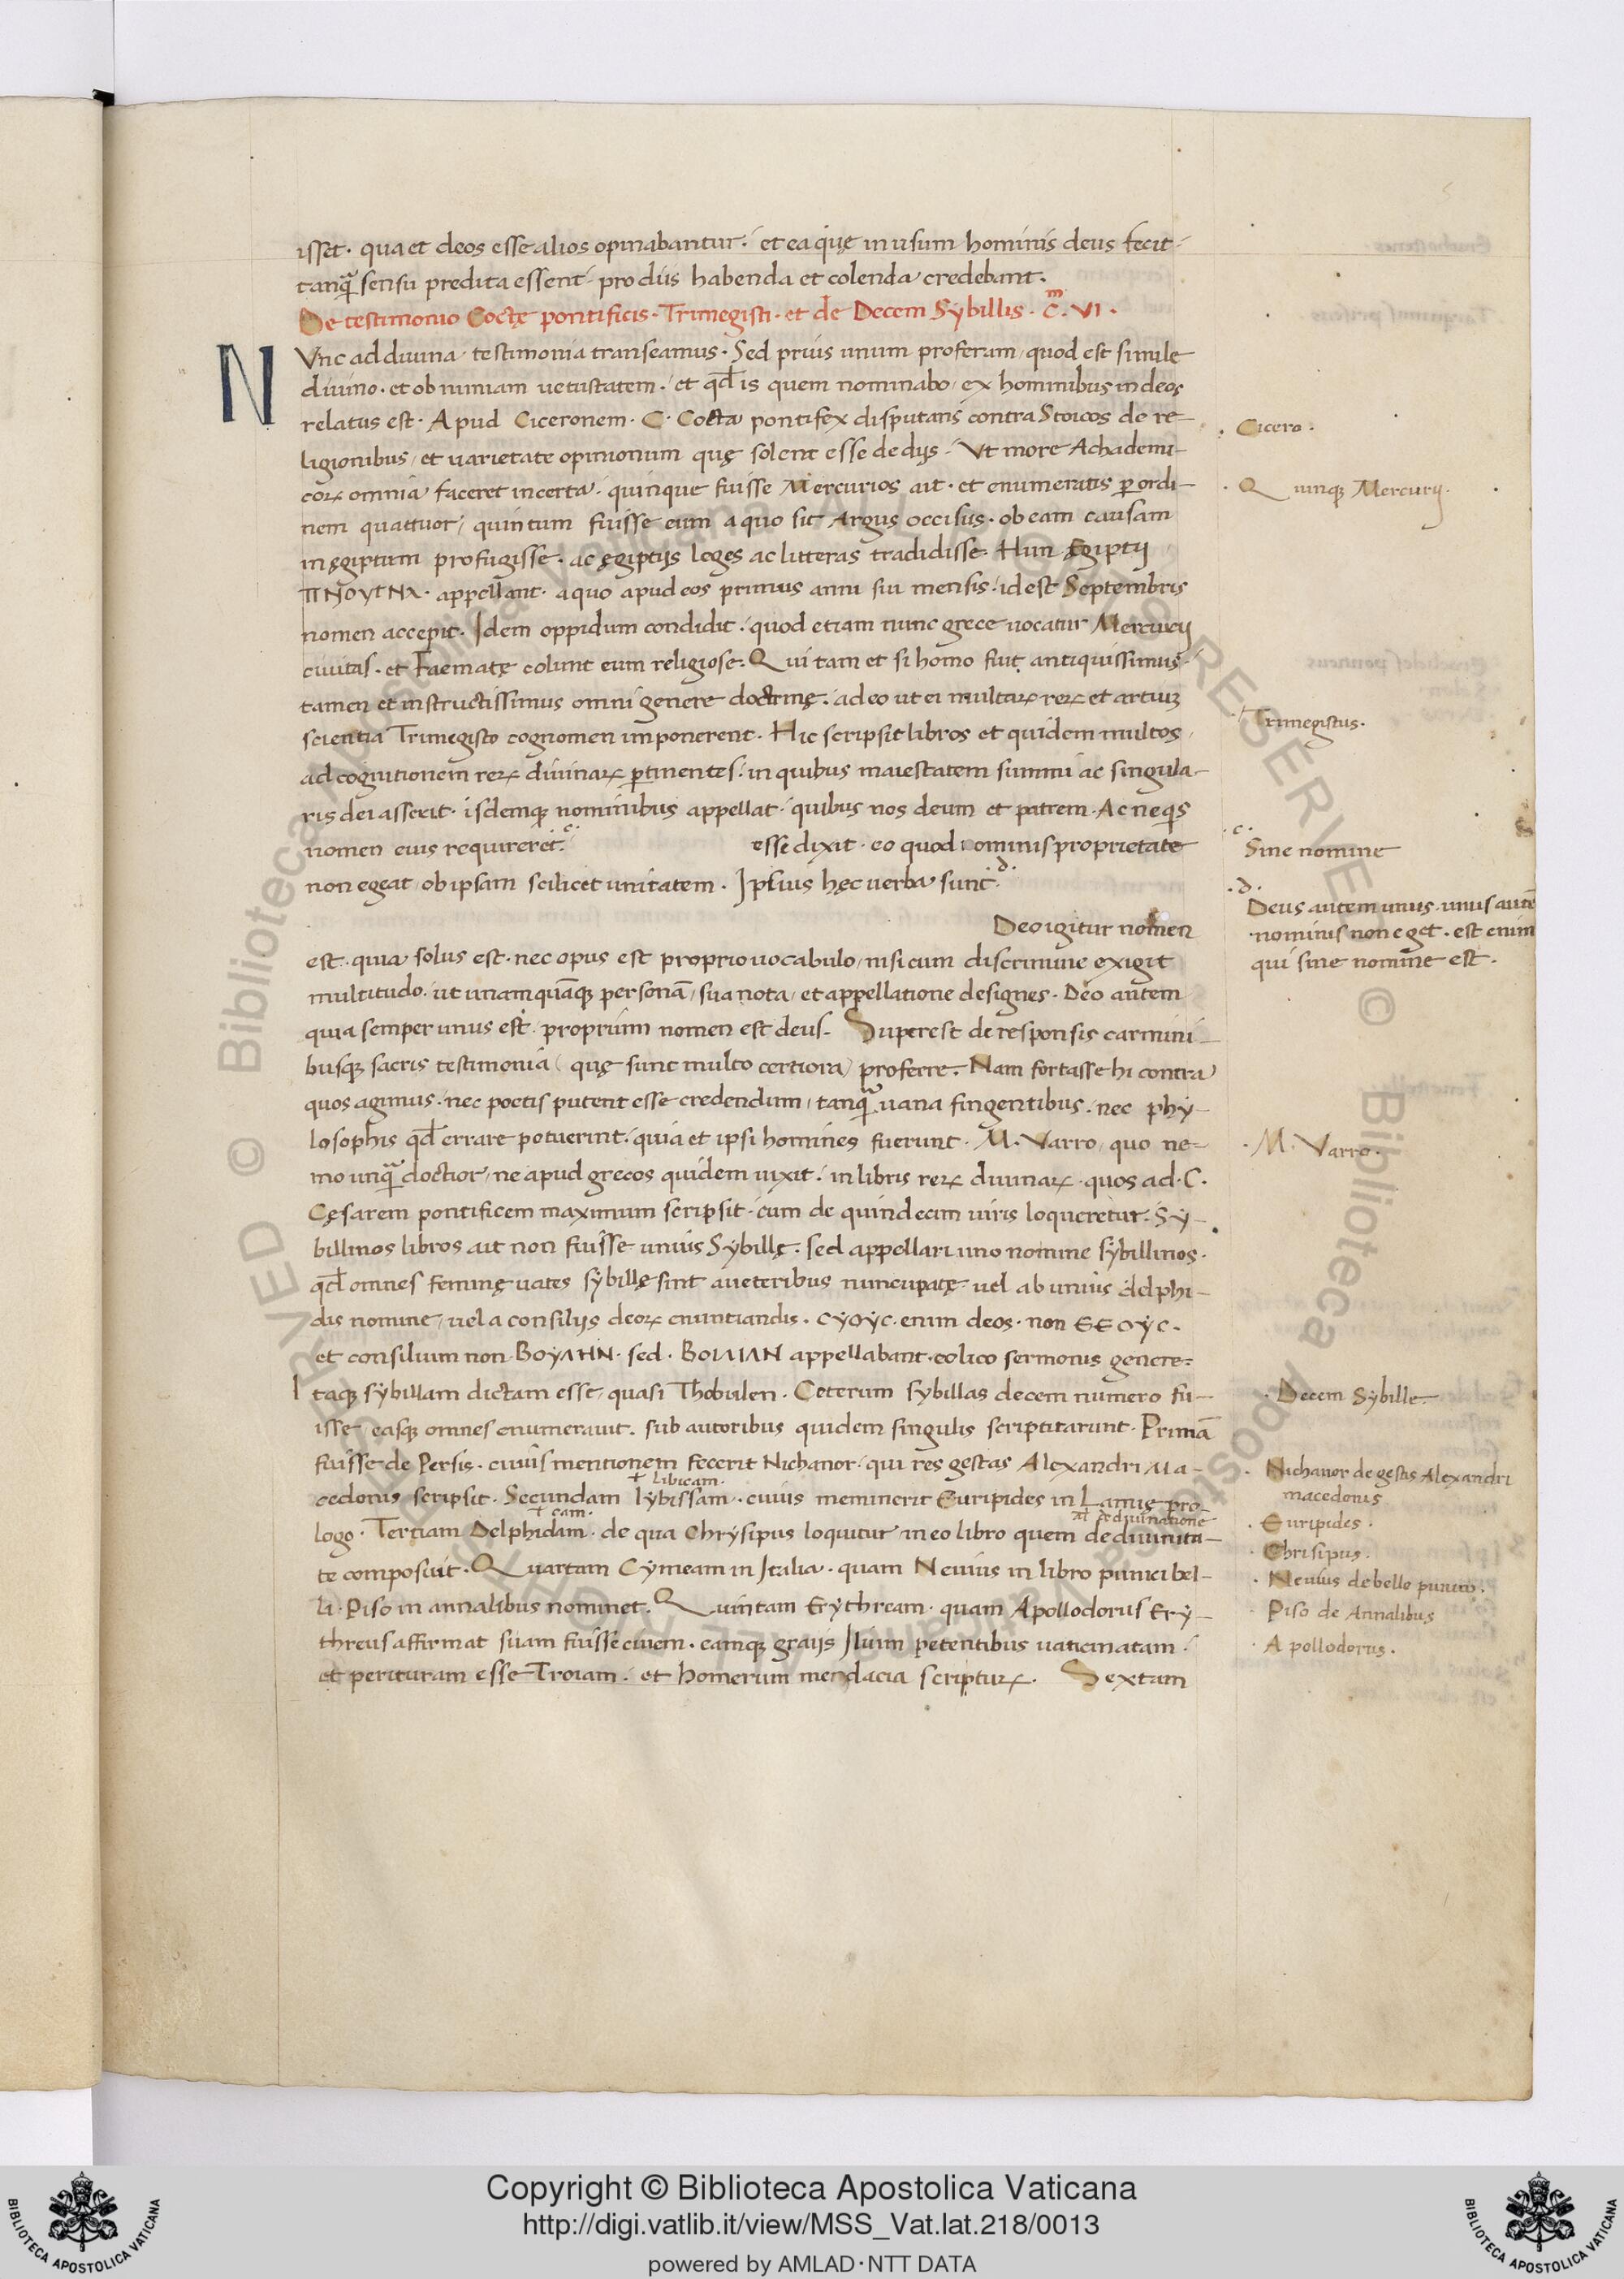 isset · qua et deos esse alios opinabantur · et ea quę in usum hominis deus fecit ·
tanq̃ sensu predita essent · pro diis habenda et colenda credebant ·
De testimonio Coctę pontificis · Trimegisti · et de Decem Sybillis · c̃m · VI ·
NVnc ad diuina testimonia transeamus · Sed prius unum proferam quod est simile
diuino · et ob nimiam uetustatem · et qđ is quem nominabo ex hominibus in deos
relatus est · Apud Ciceronem · C · Cocta pontifex disputans contra Stoicos de re-
ligionibus et uarietate opinionum quę solent esse de dijs · Vt more Achademi-
coꝝ omnia faceret incerta · quinque fuisse Mercurios ait · et enumeratis ꝑ ordi-
nem quattuor quintum fuisse eum a quo sit Argus occisus · ob eam causam
in ęgiptum profugisse · ac ęgiptijs leges ac litteras tradidisse · Hun Ęgiptij
appellant · a quo apud eos primus anni sui mensis · id est Septembris
nomen accepit · Idem oppidum condidit · quod etiam nunc grece uocatur Mercurij
ciuitas · et Faematę colunt eum religiose · Qui tam et si homo fuit antiquissimus ·
tamen et instructissimus omni genere doctrinę · adeo ut ei multaꝝ reꝝ et artiuꝫ
scientia Trimegisto cognomen imponerent · Hic scripsit libros et quidem multos
ad cognitionem reꝝ diuinaꝝ ꝑtinentes · in quibus maiestatem summi ac singula-
ris dei asserit · isdemqꝫ nominibus appellat · quibus nos deum et patrem · Ac neqs
nomen eius requireret · c · esse dixit · eo quod nominis proprietate
non egeat ob ipsam scilicet unitatem · Ipsius hęc uerba sunt · d ·
Deo igitur nomen
est · quia solus est · nec opus est proprio uocabulo nisi cum discrimine exigit
multitudo · ut unam quamqꝫ personã sua nota et appellatione designes · Deo autem
quia semper unus est · proprium nomen est deus · Superest de responsis carmini-
busqꝫ sacris testimonia ( quę sunt multo certiora ) proferre · Nam fortasse hi contra
quos agimus · nec poetis putent esse credendum tanq̃ uana fingentibus · nec phy-
losophis qđ errare potuerint · quia et ipsi homines fuerunt · M · Varro quo ne=
mo unq̃ doctior ne apud grecos quidem uixit · in libris reꝝ diuinaꝝ · quos ad · C ·
Cęsarem pontificem maximum scripsit · cum de quindecim uiris loqueretur · Sy-
billinos libros ait non fuisse unius Sybillę · sed appellari uno nomine sybillinos ·
qđ omnes feminę uates sybillę sint a ueteribus nuncupatę · uel ab unius delphi-
dis nomine uel a consilijs deoꝝ enuntiandis · CYOYC · enim deos · non ΘΕΟΥC ·
et consilium non · ΒΟΥΛΗΝ · sed · appellabant · eolico sermonis genere=
Itaqꝫ sybillam dictam esse quasi Thobulen · Ceterum sybillas decem numero fu-
isse easqꝫ omnes enumerauit · sub autoribus quidem singulis scriptitarunt · Primã
fuisse de Persis · cuius mentionem fecerit Nichanor · qui res gestas Alexandri Ma-
+ libicam ·
cedonis scripsit · Secundam lybissam · cuius meminerit Euripides in Lamię pro-
+ cam · al̃ de diuinatione
logo · Tertiam Delphidam · de qua Chrysipus loquitur in eo libro quem de diuinita-
te composuit · Quartam Cymeam in Italia · quam Neuius in libro punici bel-
li · Piso in annalibus nominet · Quintam Erythream · quam Apollodorus Ery-
threus affirmat suam fuisse ciuem · eamqꝫ graijs Ilium petentibus uaticinatam ·
et perituram esse Troiam · et homerum mendacia scriptuꝝ · Sextam
Cicero ·
Quinqꝫ Mercurij ·
Trimegistus ·
· c ·
Sine nomine
· d ·
Deus autem unus · unus autẽ
nominis non eget · est enim
qui sine nomine est ·
M · Varro ·
Decem Sybille
Nichanor de gestis Alexandri
macedonis
Euripides ·
Chrisipus ·
Neuius de bello punico ·
Piso de Annalibus
Apollodorus ·
Copyright © Biblioteca Apostolica Vaticana
http://digi.vatlib.it/view/MSS_Vat.lat.218/0013
powered by AMLAD·NTT DATA
BIBLIOTECA APOSTOLICA VATICANA
BIBLIOTECA APOSTOLICA VATICANA